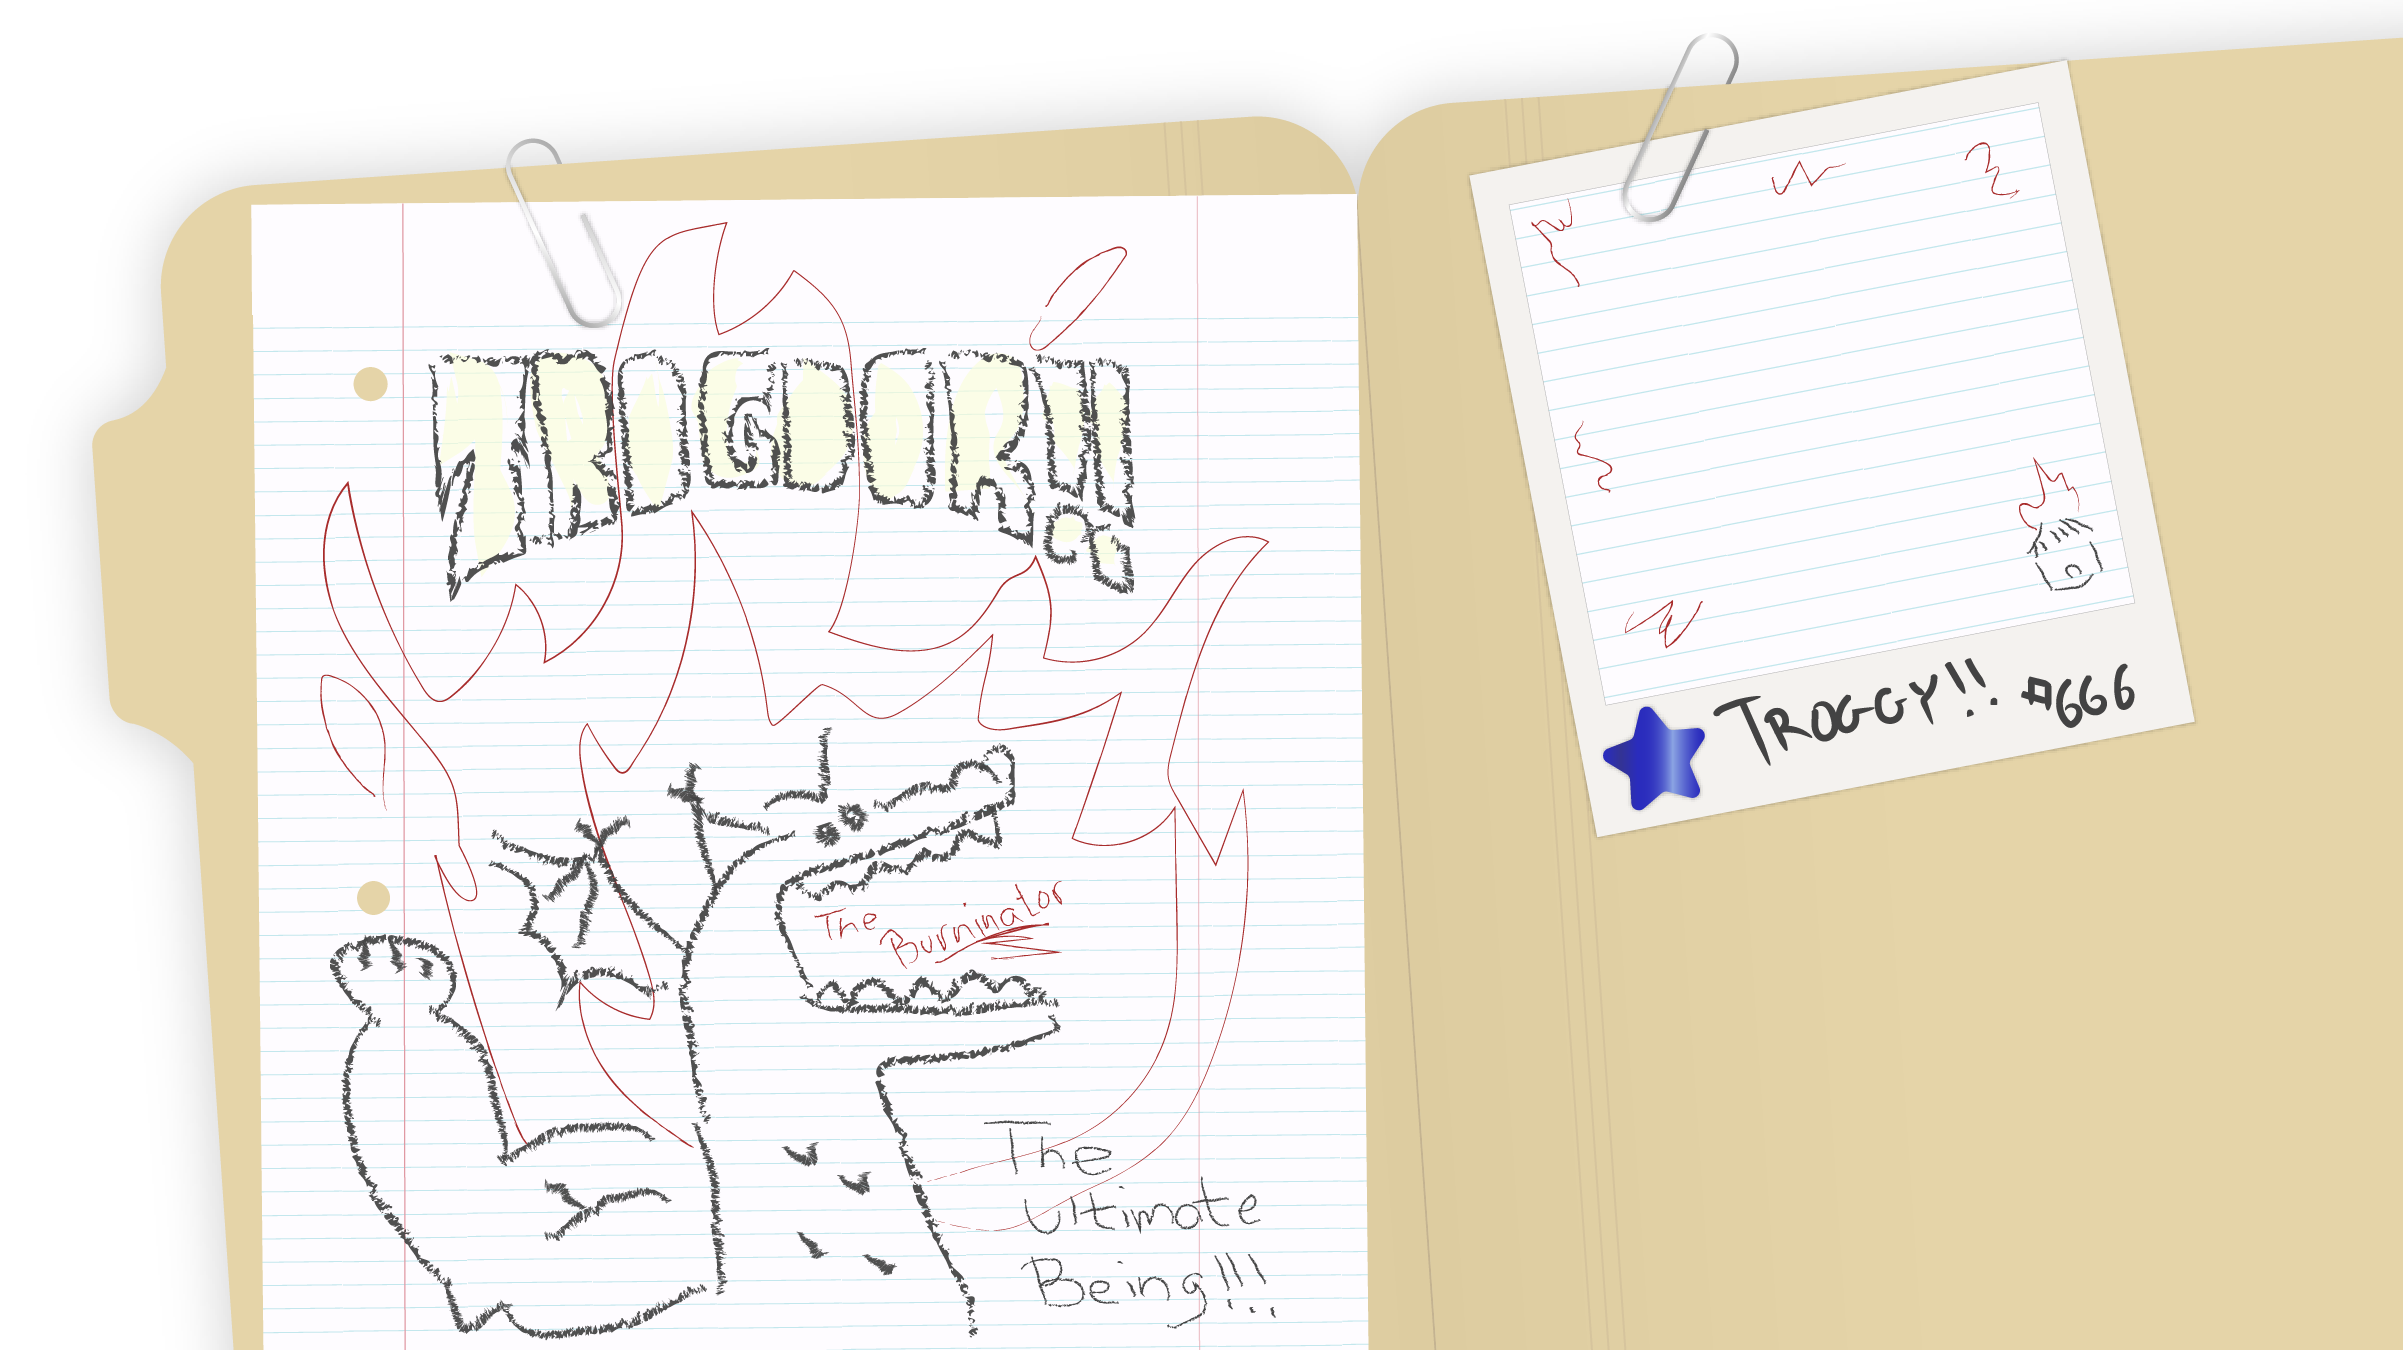 TROGDOR!!
The
Burninator
The
Ultimate
Being!!!
TROGGY!! #666